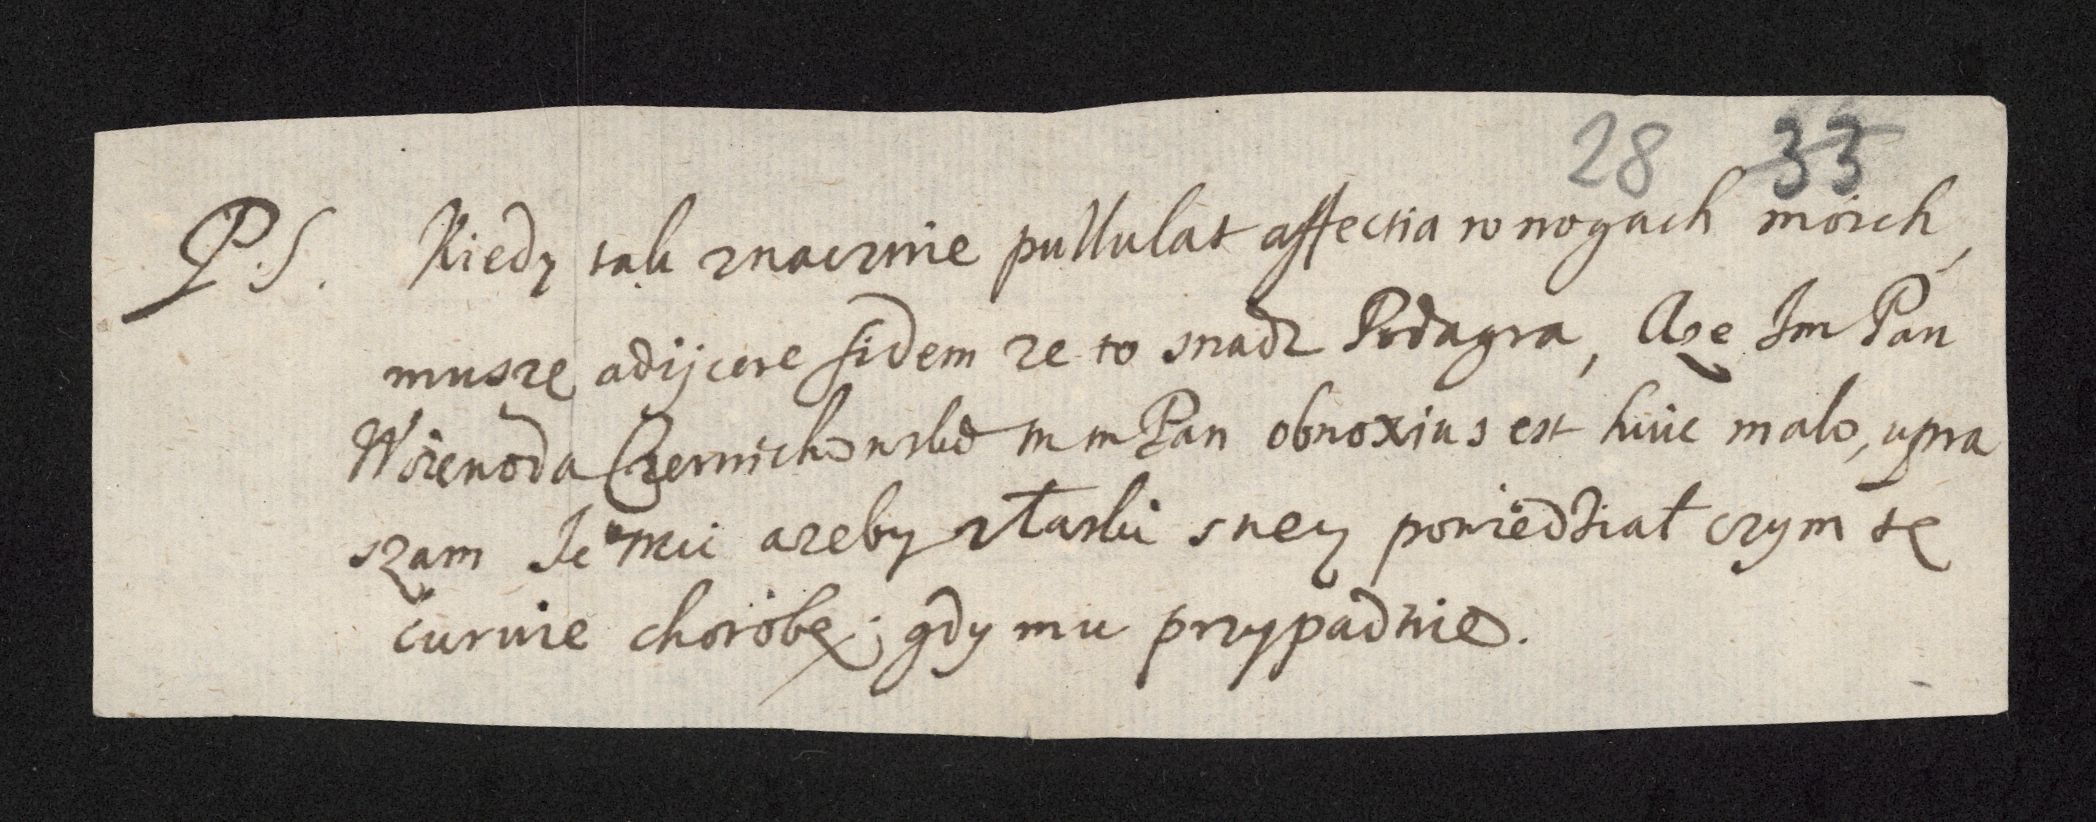 28 33
P.S. Kiedy tak znacznie pullulat affectia w nogach moich,
musze adijcere fidem ze to snadz Podagra, Aże Im Pan
Woiewoda Czernichowski m m Pan obnoxius est huic malo, upra
szam Je°mci azeby złaski swey powiedział czym tę
curuie chorobę; gdy mu przypadnie.